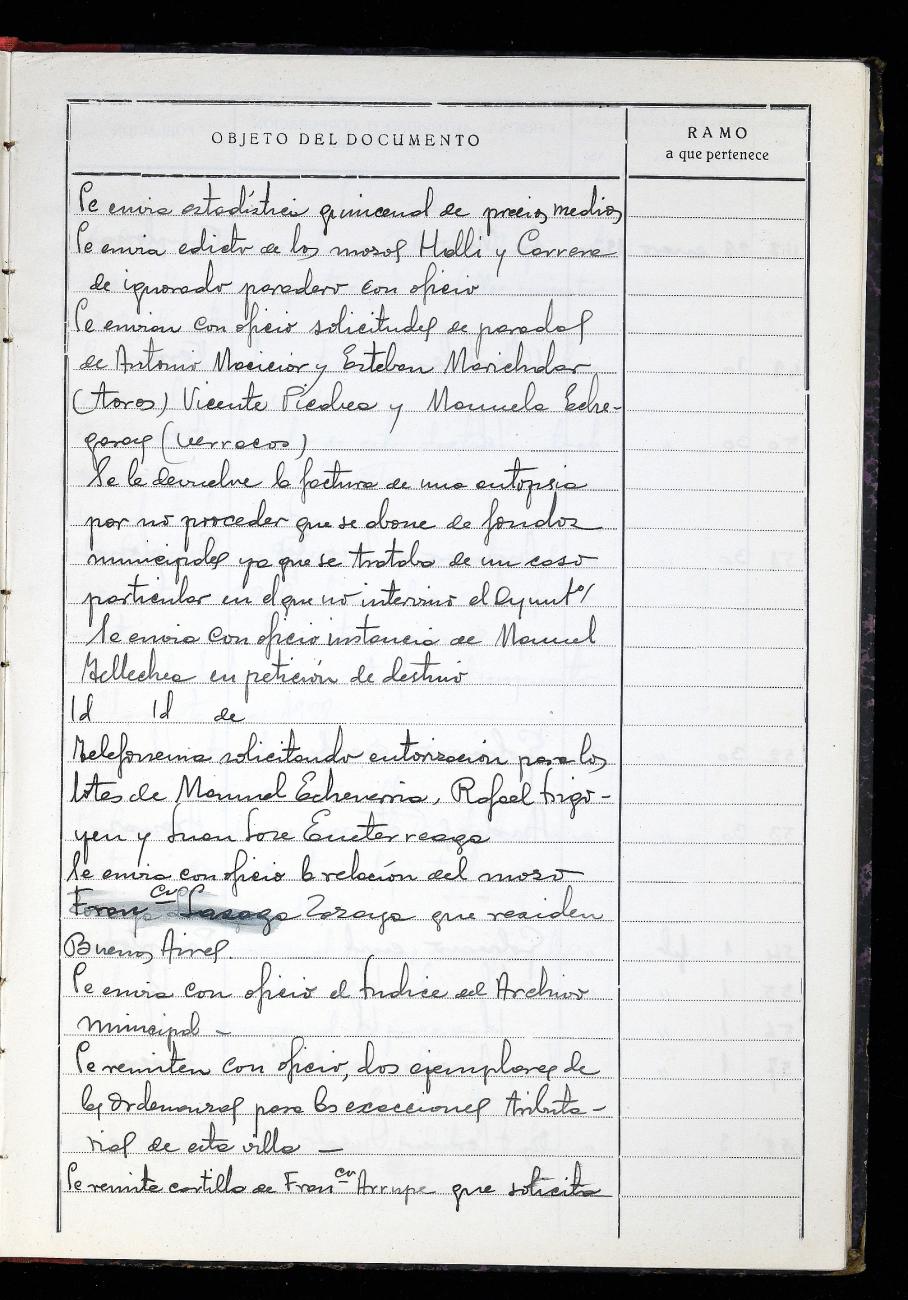 OBJETO DEL DOCUMENTO
RAMO
a que pertenece
Se envia estadística quincenal de precios medios
Se envia edicto de los mosos Halli y Carrera
de ignorado paradero con oficio
Se envian con oficio solicitudes de paradas
de Antonio Macicior y Esteban Marichalar
(toros) Vicente Piedra y Manuela Eche-
garay (verracos)
Se le devuelve la factura de una autopsia
por no proceder que se abone de fondos
municipales ya que se trataba de un caso
particular en el que no intervino el Ayuntº/
Se envia con oficio instancia de Manuel
Tellechea en petición de destino
Id Id de
Telefonema solicitando autorización para los
lotes de Manuel Echeverria, Rafael Irigo-
yen y Juan Jose
Se envia con oficio la relación del moso
Francº Zozaya que residen
Buenos Aires.
Se envia con oficio el Indice del Archivo
Municipal -
Se remiten con oficio, dos ejemplares de
las Ordenanzas para las exacciones tributa-
rias de esta villa -
Se remite cartilla de Francº Arrupe que solicita